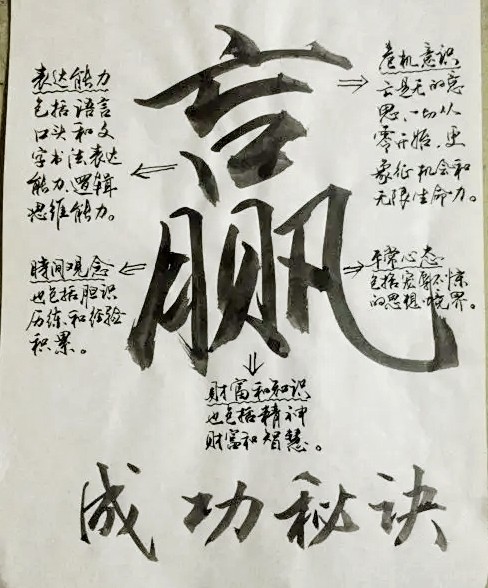 赢
表达能力
包括语言
口头和文
字书法表达
能力、逻辑
思维能力。
危机意识
亡是无的意
思、一切从
零开始、更
象征机会和
无限生命力。
時间观念
也包括胆识
历练和经验
积累。
平常心态
包括宠辱不惊
的思想境界。
财富和知识
也包括精神
财富和智慧。
成功秘诀